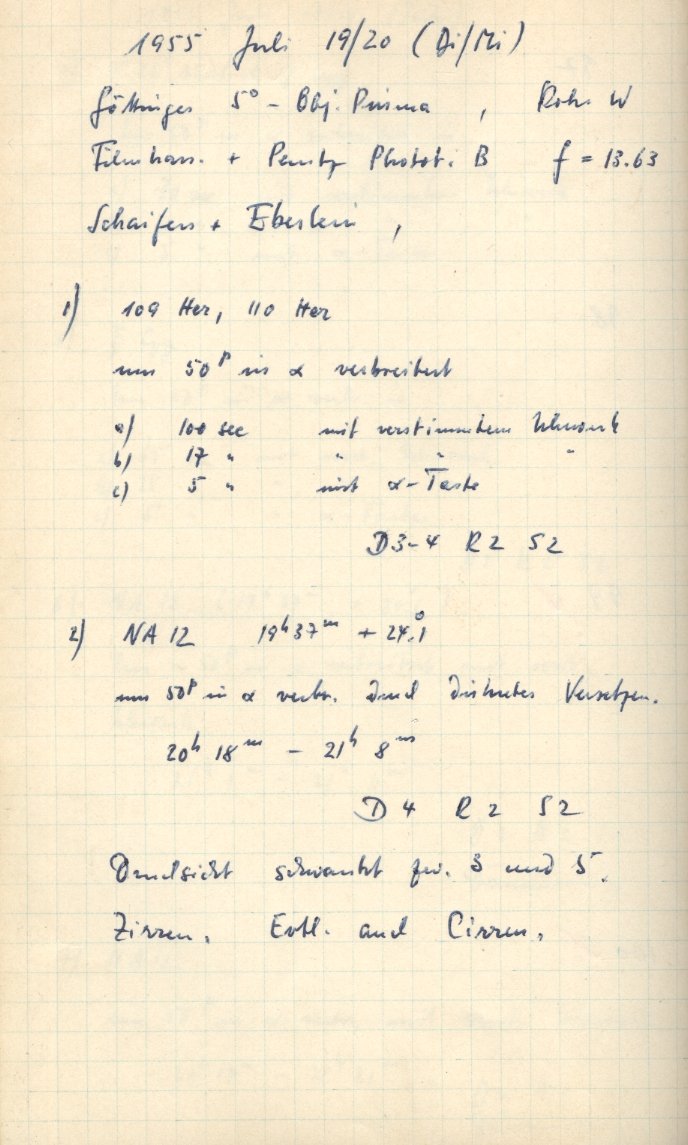 1955 Juli 19/20 (Di/Mi)
Göttinger 5° - Obj. Prisma, Rohr W
Filmkass. + Perutz Photot. B f = 13.63
Schaifers + Eberlein,
1) 109 Her, 110 Her
um 50ᵖ in α verbreitert
a) 100 sec mit verstimmtem Uhrwerk
b) 17 " " " "
c) 5 " mit α-Taste
D3-4 R2 S2
2) NA 12 19ʰ37ᵐ + 24.°1
um 50ᵖ in α verbr. durch diskretes Versetzen.
20ʰ 18ᵐ - 21ʰ 8ᵐ
D 4 R 2 S 2
Durchsicht schwankt zw. 3 und 5.
Zirren. Evtl. auch Cirren.